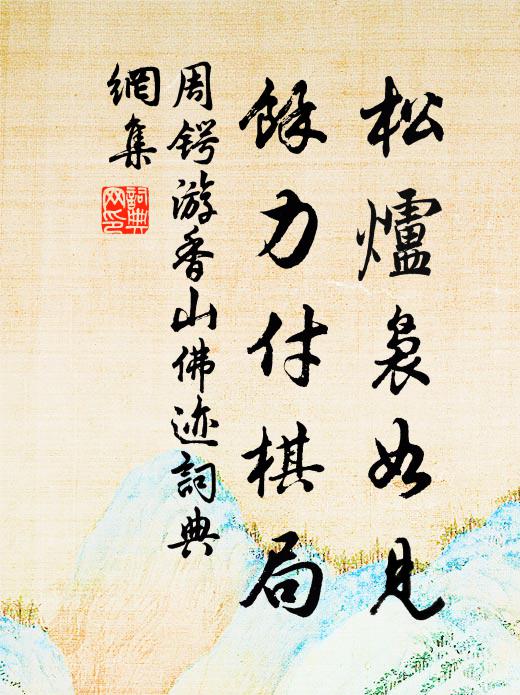 松爐裊如見
餘力付棋局
周鍔游香山佛迹詞典
網集
詞典
网印